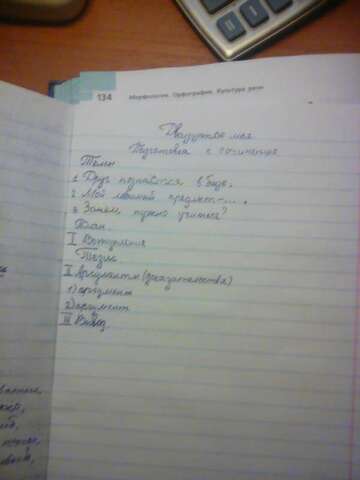 134 Морфология. Орфография. Культура речи
Двадцатое мая
Подготовка к сочинению
Темы
1 Друг познаётся в беде.
2 Мой любимый предмет-... .
3 Зачем нужно учиться?
План.
I Вступление
Тезис
II Аргументы (доказательства)
1) аргумент
2) аргумент
III Вывод.